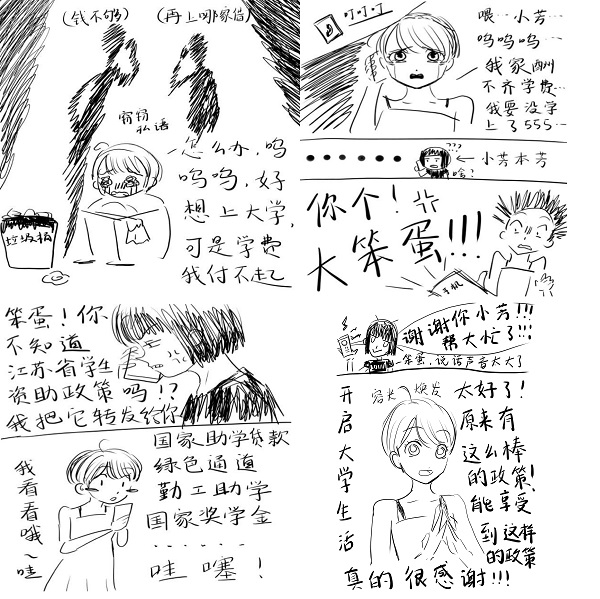 (钱不够)
(再上哪家借)
窃窃
私语
怎么办,呜
呜呜,好
想上大学,
可是学费
我付不起
垃圾桶
叮叮叮
喂…小芳…
呜呜呜…
我家酬
不齐学费…
我要没学
上了555…
???
← 小芳本芳
啥?
你个!
大笨蛋!!!
手机
笨蛋!你
不知道
江苏省学生
资助政策吗!?
我把它转发给你
我看看哦~哇
国家助学贷款
绿色通道
勤工助学
国家奖学金
......
哇 噻!
谢谢你小芳!!!
帮大忙了!!!
←笨蛋,说话声音太大了
容光 焕发
开启大学生活
太好了!
原来有
这么棒
的政策!
能享受
到这样
的政策
真的很感谢!!!